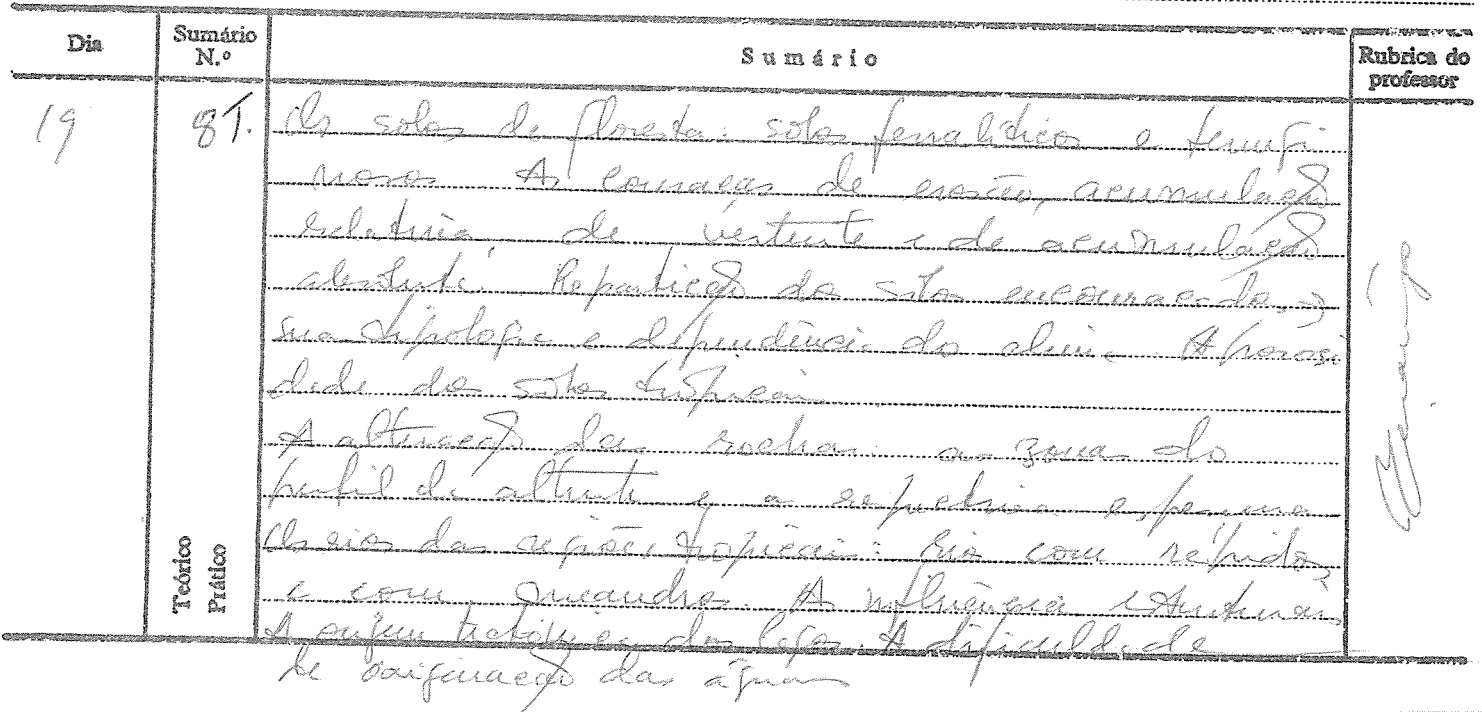 Dia
Sumário N.º
Sumário
Rubrica do professor
19
8T.
Os solos de floresta: solos ferralíticos e ferrugi
nosos As couraças de erosão, acumulação
relativa, de vertente e de acumulação
absoluta. Repartição dos solos encouraçados,
sua tipologia e dependência do clima. A porosi
dade dos solos tropicais
A alteração das rochas: as zonas do
perfil de alterite e a sequência
Os rios das regiões tropicais: rios com rápidos
e com meandros. A influência estrutural
A origem tectónica dos lagos. A dificuldade
de oxigenação das águas
Teórico
Prático